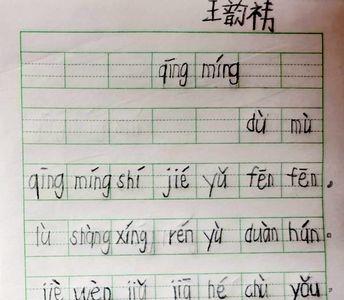 王韵
qīng míng
dù mù
qīng míng shí jié yǔ fēn fēn ,
lù shàng xíng rén yù duàn hún 。
jiè wèn jiǔ jiā hé chù yǒu